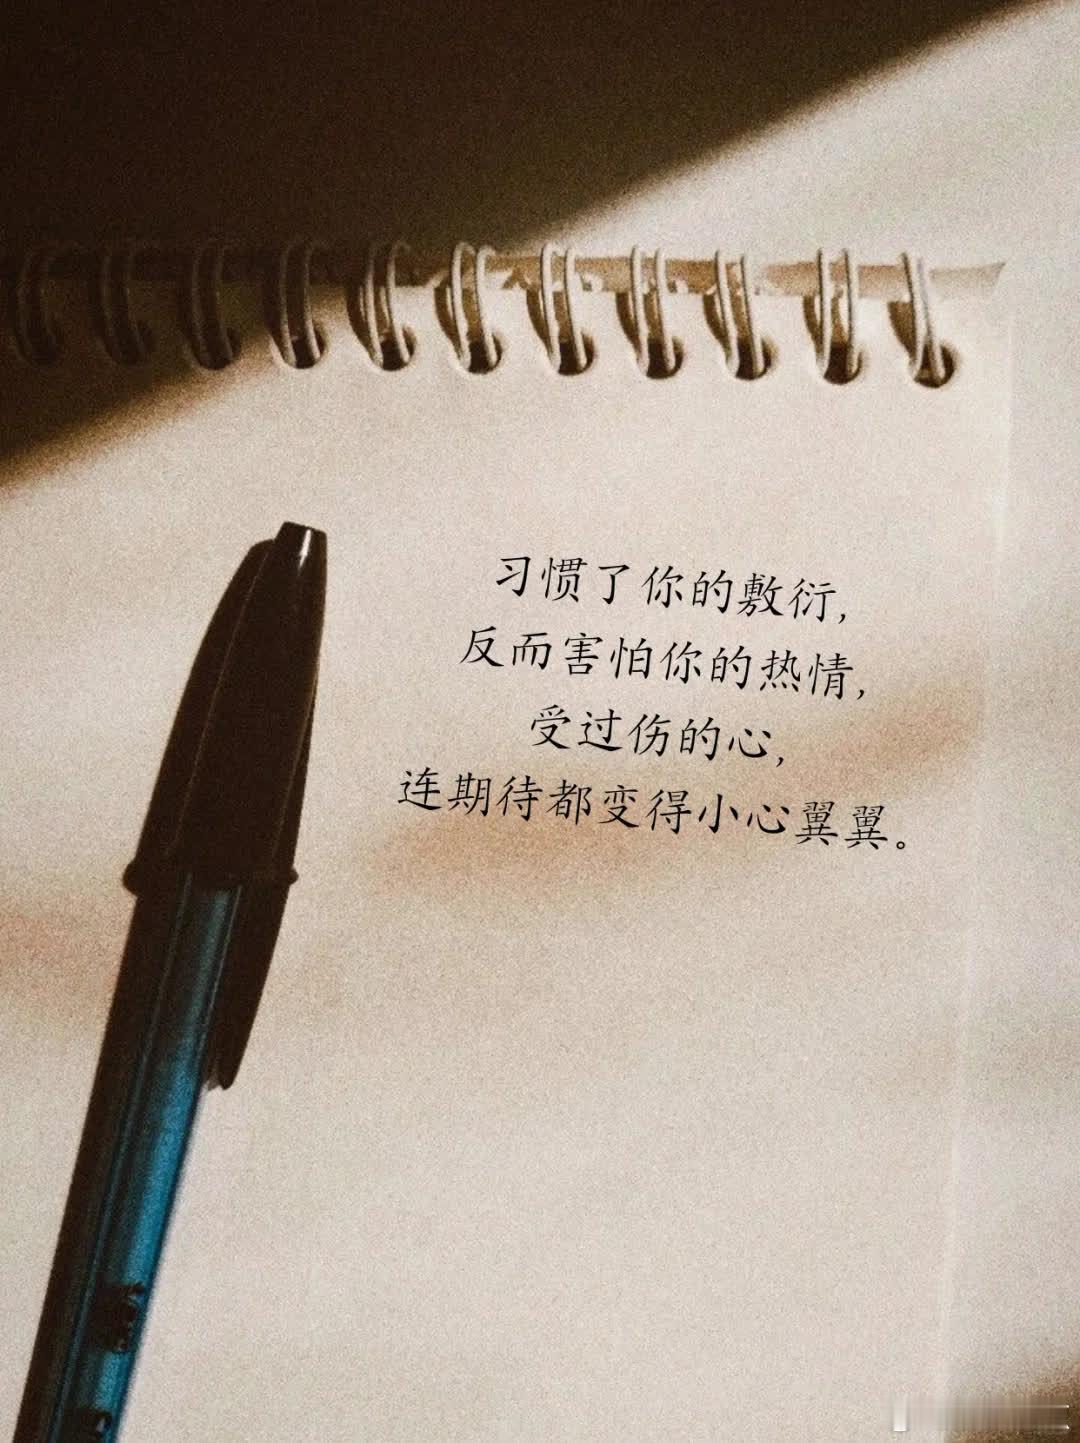 习惯了你的敷衍，
反而害怕你的热情，
受过伤的心，
连期待都变得小心翼翼。